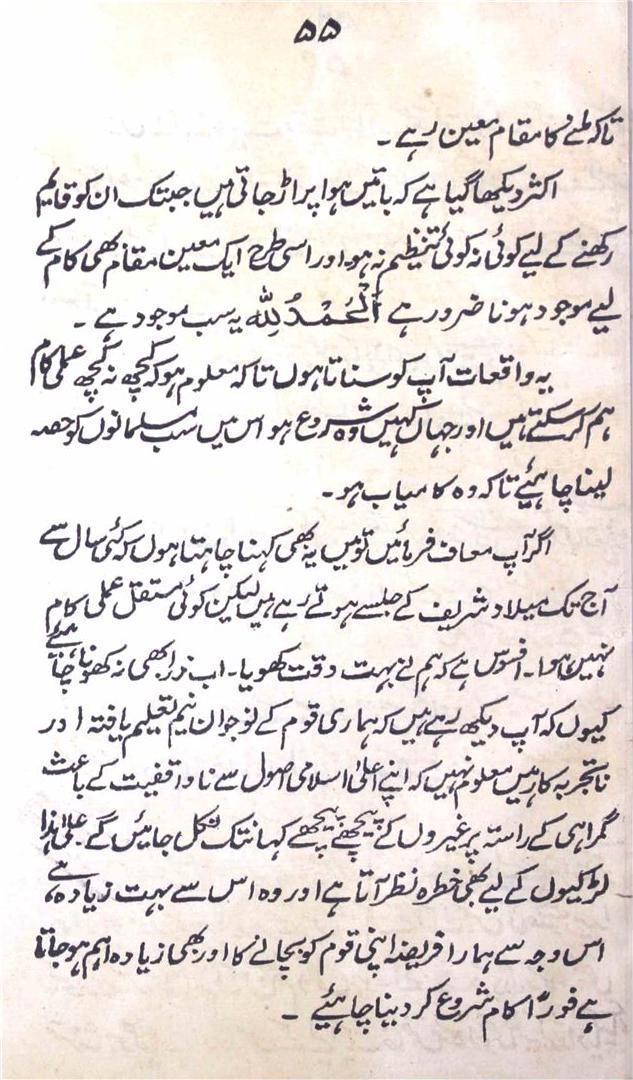 ۵۵
تاکہ ملنے کا مقام معین رہے ۔
اکثر دیکھا گیا ہے کہ باتیں ہوا پر اڑ جاتی ہیں جبتک ان کو قایم
رکھنے کے لیے کوئی نہ کوئی تنظیم نہ ہو اور اسی طرح ایک معین مقام بھی کام کے
لیے موجود ہونا ضرور ہے اَلْحَمْدُلِلّٰہ یہ سب موجود ہے ۔
یہ واقعات آپ کو سناتا ہوں تاکہ معلوم ہو کہ کچھ نہ کچھ عملی کام
ہم کر سکتے ہیں اور جہاں کہیں وہ شروع ہو اس میں سب مسلمانوں کو حصہ
لینا چاہئیے تاکہ وہ کامیاب ہو ۔
اگر آپ معاف فرمائیں تو میں یہ بھی کہنا چاہتا ہوں کہ کئی سال سے
آج تک میلاد شریف کے جلسے ہوتے رہے ہیں لیکن کوئی مستقل عملی کام
نہیں ہوا ۔ افسوس ہے کہ ہم نے بہت وقت کھویا ۔ اب ذرا بھی نہ کھونا چاہئیے
کیوں کہ آپ دیکھ رہے ہیں کہ ہماری قوم کے نوجوان نیم تعلیم یافتہ اور
ناتجربہ کار ہیں معلوم نہیں کہ اپنے اعلیٰ اسلامی اصول سے ناواقفیت کے باعث
گمراہی کے راستہ پر غیروں کے پیچھے پیچھے کہانتک نکل جائیں گے علیٰ ہذا
لڑکیوں کے لیے بھی خطرہ نظر آتا ہے اور وہ اس سے بہت زیادہ ہے،
اس وجہ سے ہمارا فریضہ اپنی قوم کو بچانے کا اور بھی زیادہ اہم ہو جاتا
ہے فوراً کام شروع کر دینا چاہئیے ۔